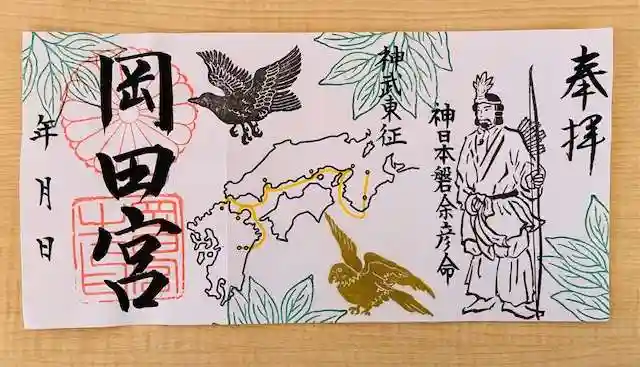 奉拝
神日本磐余彦命
神武東征
岡田宮
年月日